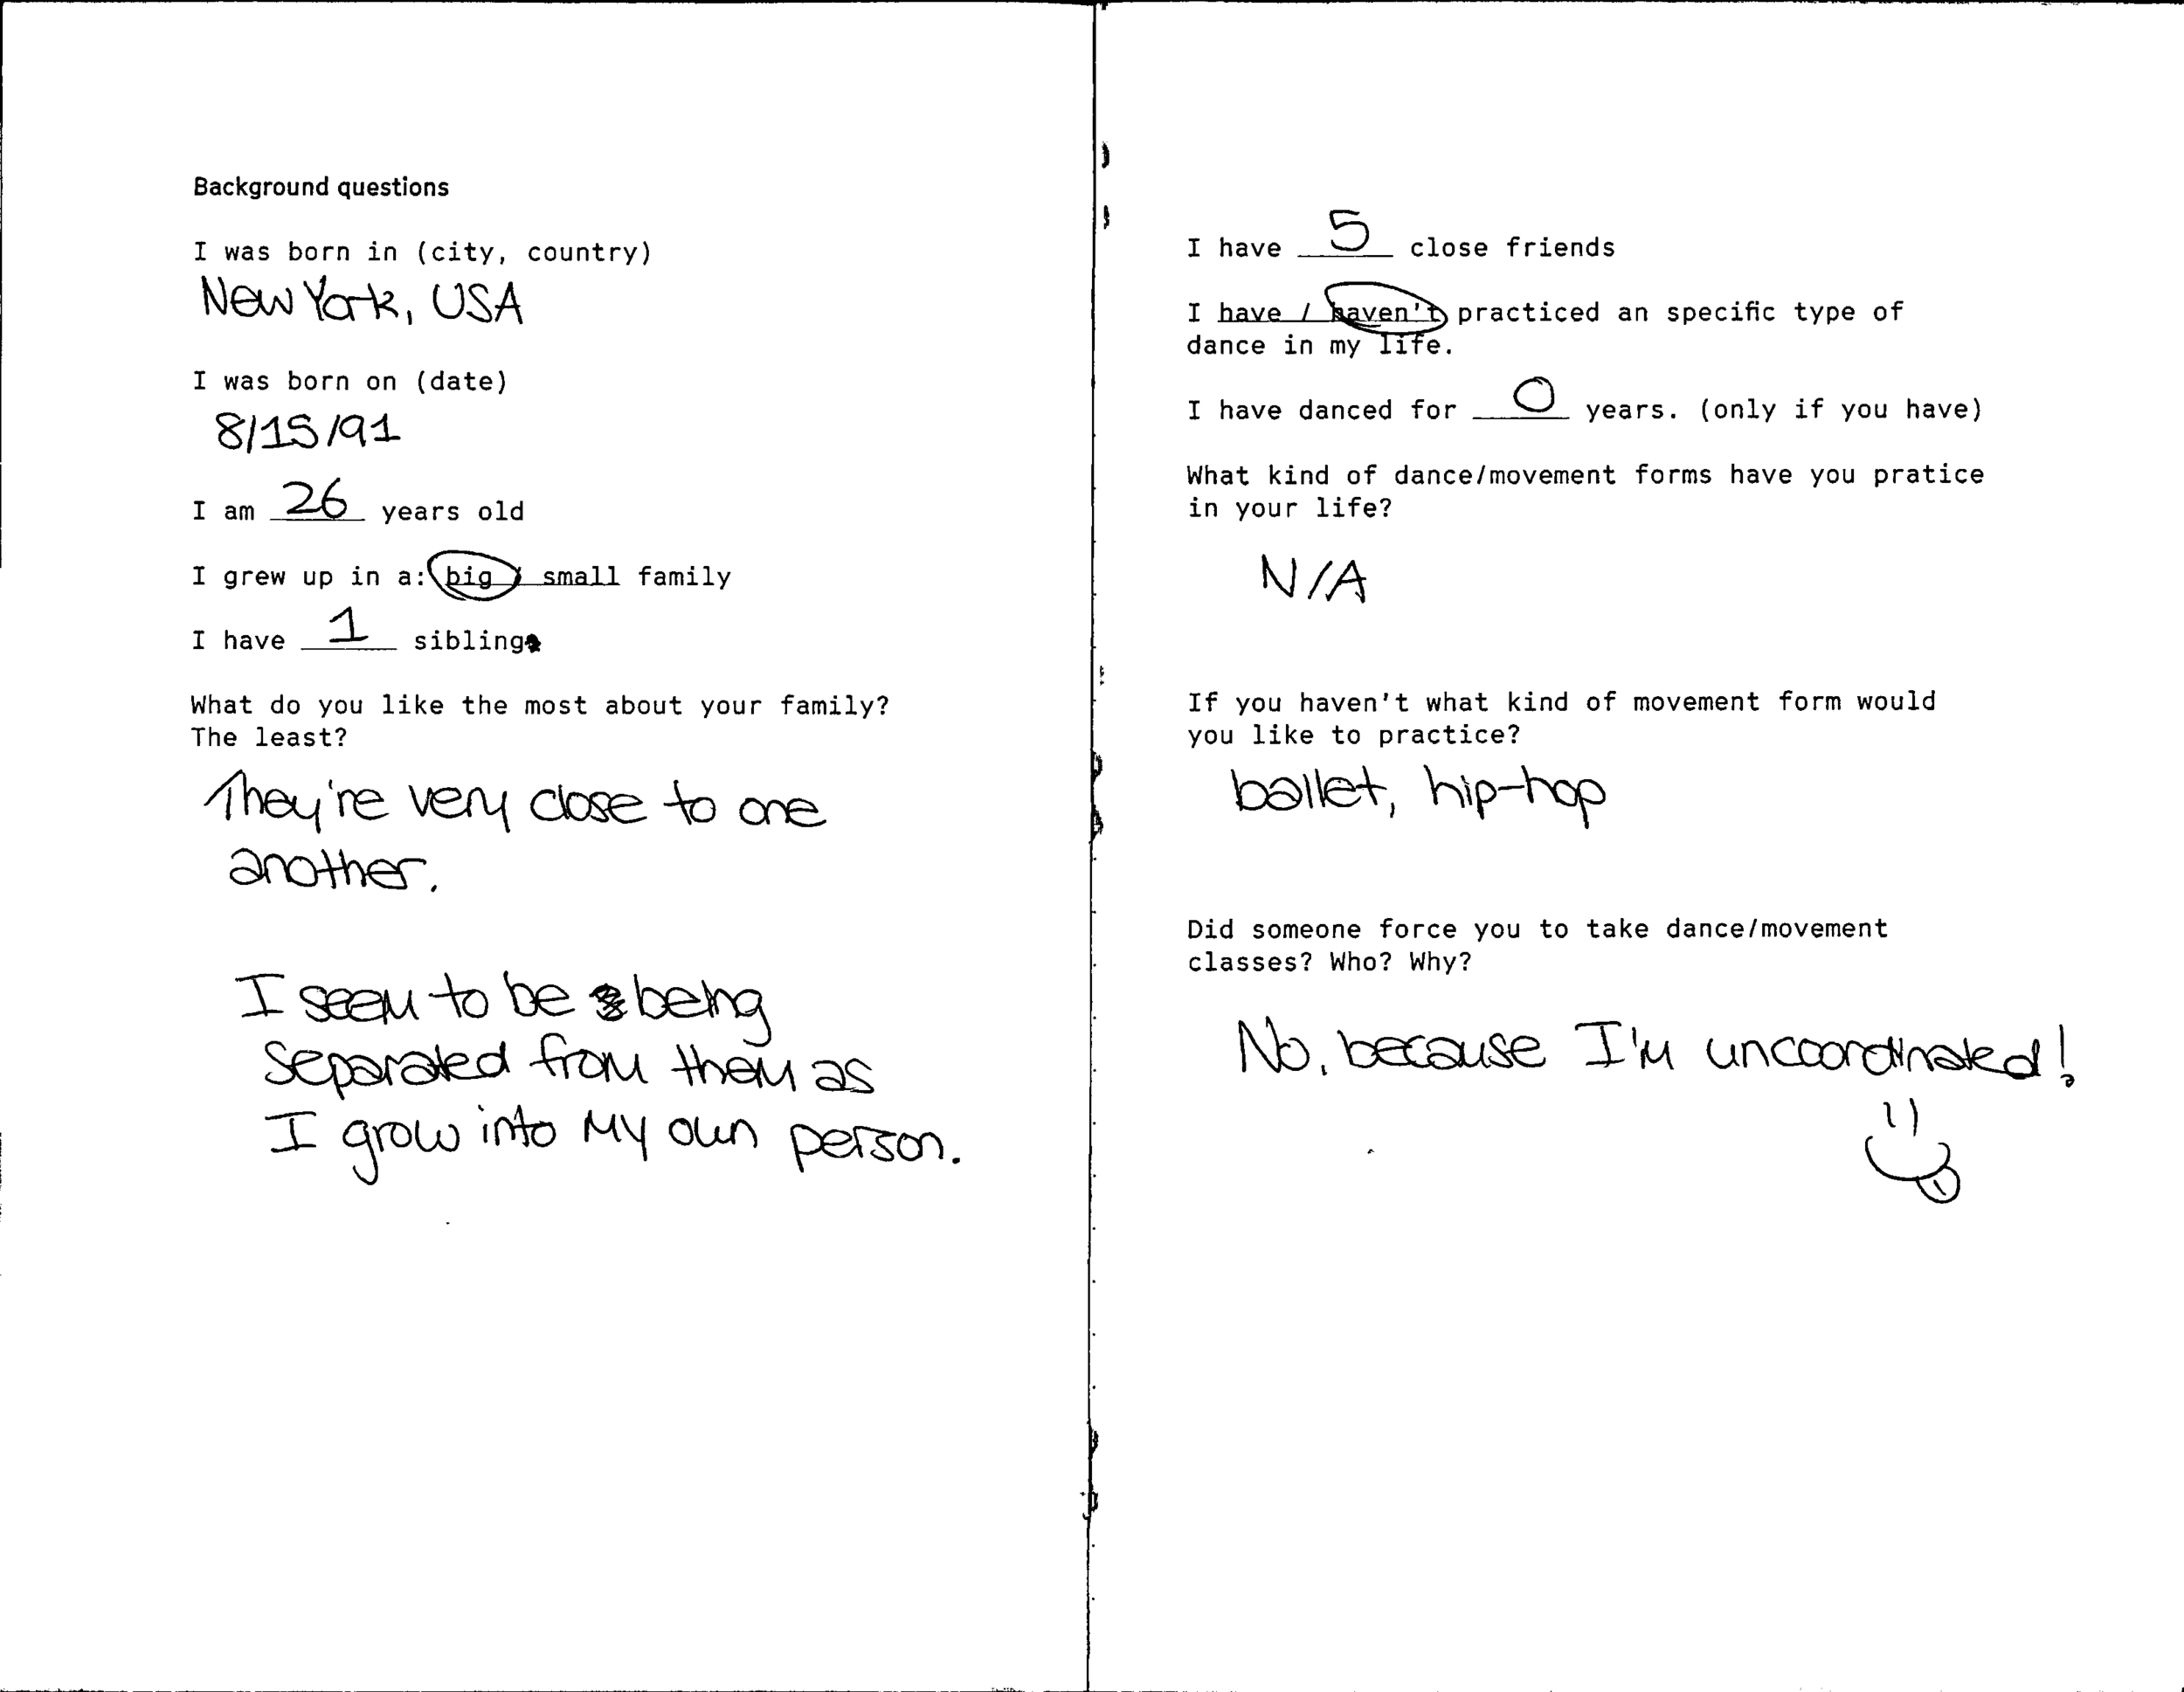 Background questions
I was born in (city, country)
New York, USA
I was born on (date)
8/15/91
I am 26 years old
I grew up in a: big / small family
I have 1 sibling
What do you like the most about your family?
The least?
They're very close to one
another.
I seem to be being
separated from them as
I grow into my own person.
I have 5 close friends
I have / haven't practiced an specific type of
dance in my life.
I have danced for 0 years. (only if you have)
What kind of dance/movement forms have you pratice
in your life?
N/A
If you haven't what kind of movement form would
you like to practice?
ballet, hip-hop
Did someone force you to take dance/movement
classes? Who? Why?
No, because I'm uncoordinated!